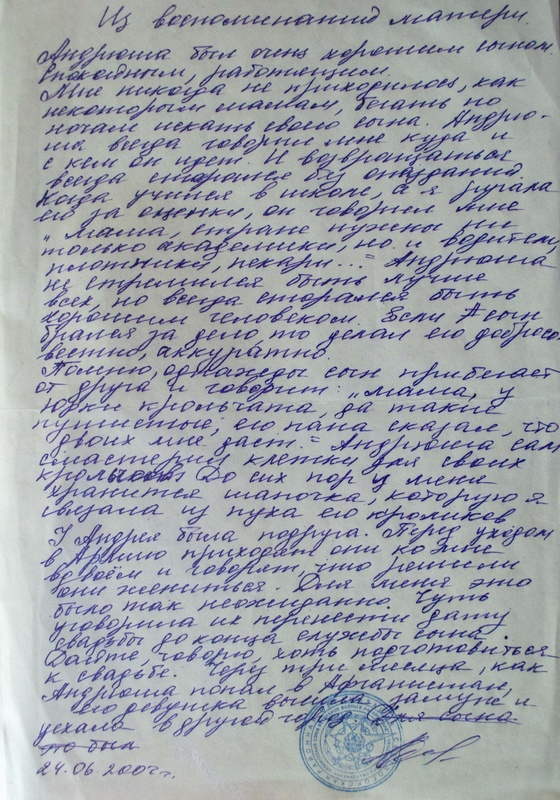 Из воспоминаний матери.
Андрюша был очень хорошим сыном.
Спокойным, работящим.
Мне никогда не приходилось, как
некоторым мамам, бегать по
ночам искать своего сына. Андрю-
ша всегда говорил мне куда и
с кем он идет. И возвращаться
всегда старался без опозданий.
Когда учился в школе, а я ругала
его за оценки, он говорил мне
„Мама, стране нужны не
только академики, но и водители
плотники, пекари..." Андрюша
не стремился быть лучше
всех, но всегда старался быть
хорошим человеком. Если сын
брался за дело, то делал его добросо
вестно, аккуратно.
Помню, однажды сын прибегает
от друга и говорит: „мама, у
Юрки крольчата, да такие
пушистые, его папа сказал, что
двоих мне даст." Андрюша сам
смастерил клетки для своих
кроликов. До сих пор у меня
хранится шапочка, которую я
связала из пуха его кроликов
У Андрея была подруга. Перед уходом
в Армию приходят они ко мне
вдвоём и говорят, что решили
они жениться. Для меня это
было так неожиданно. Чуть
уговорила их перенести дату
свадьбы до конца службы сына.
Дайте, говорю, хоть подготовиться
к свадьбе. Через три месяца, как
Андрюша попал в Афганистан,
его девушка вышла замуж и
уехала в другой город. Для сына
это был
24.06.2007г.